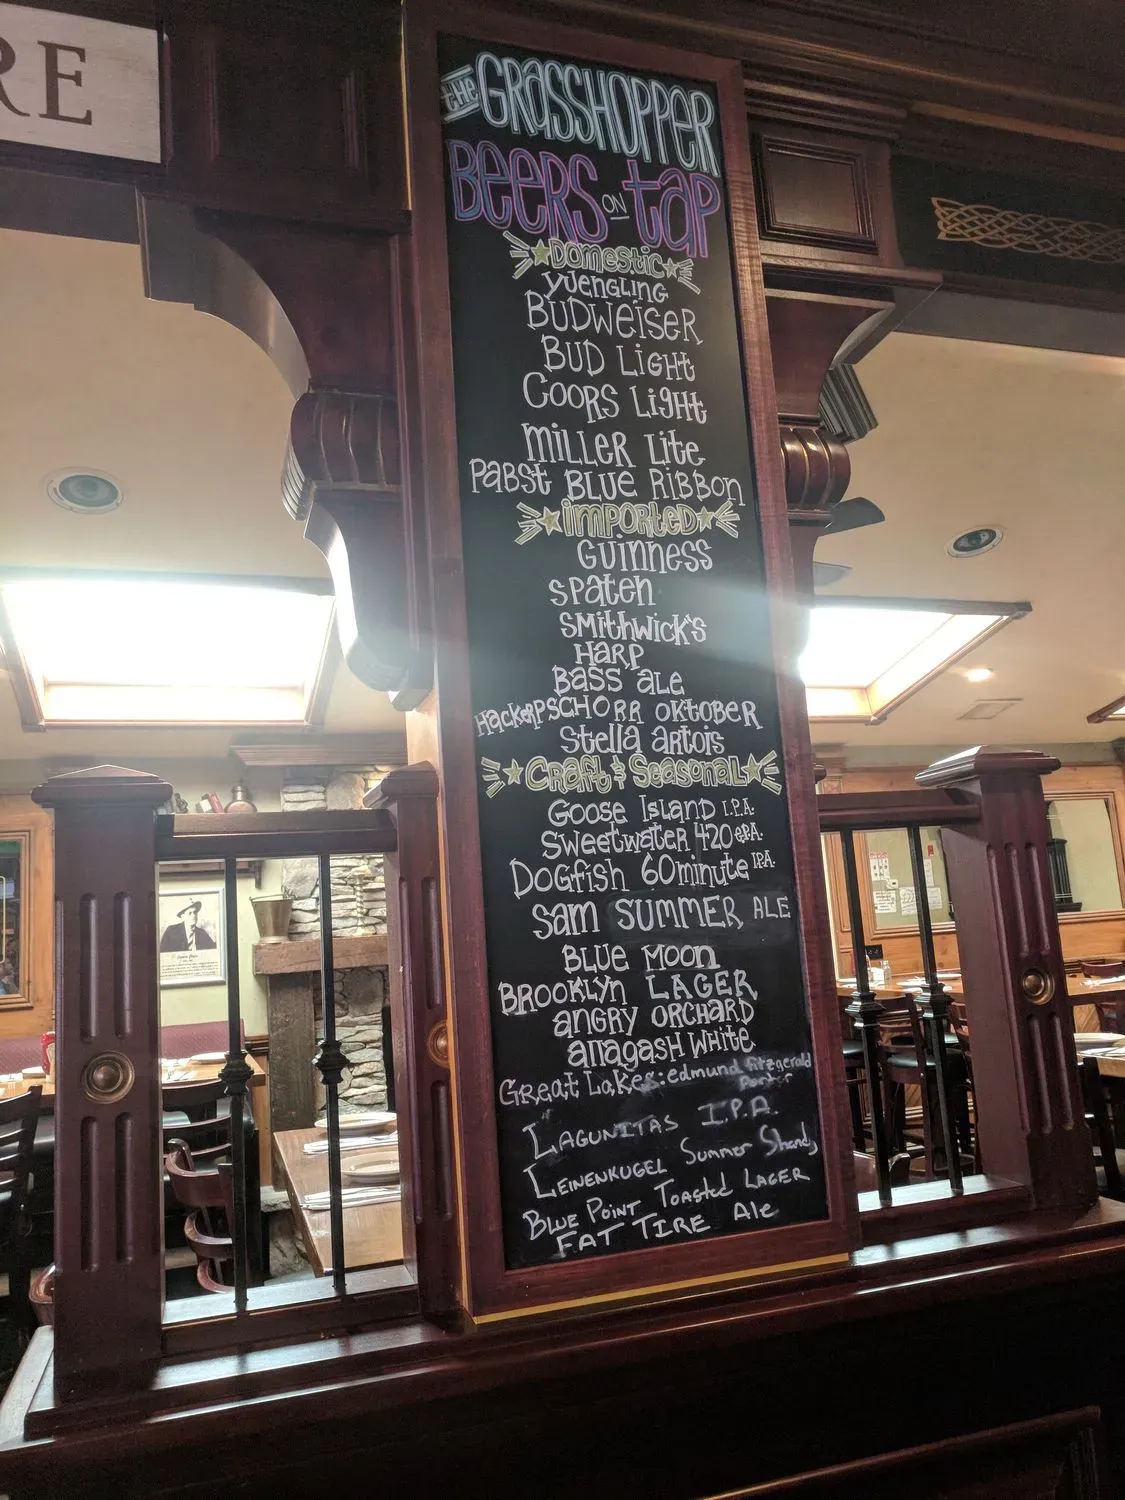 RE
THE GRASSHOPPER
BEERS ON TAP
DOMESTIC
YUENGLING
BUDWEISER
BUD LIGHT
COORS LIGHT
MILLER LITE
PABST BLUE RIBBON
IMPORTED
GUINNESS
SPATEN
SMITHWICK'S
HARP
BASS ALE
HACKERPSCHORR OKTOBER
STELLA ARTOIS
CRAFT & SEASONAL
GOOSE ISLAND I.P.A.
SWEETWATER 420 ePA.
DOGFISH 60 minute IPA.
SAM SUMMER ALE
BLUE MOON
BROOKLYN LAGER
ANGRY ORCHARD
ALLAGASH WHITE
GREAT LAKES: edmund fitzgerald
Porter
LAGUNITAS I.P.A.
LEINENKUGEL Summer Shandy
BLUE POINT Toasted LAGER
FAT TIRE Ale